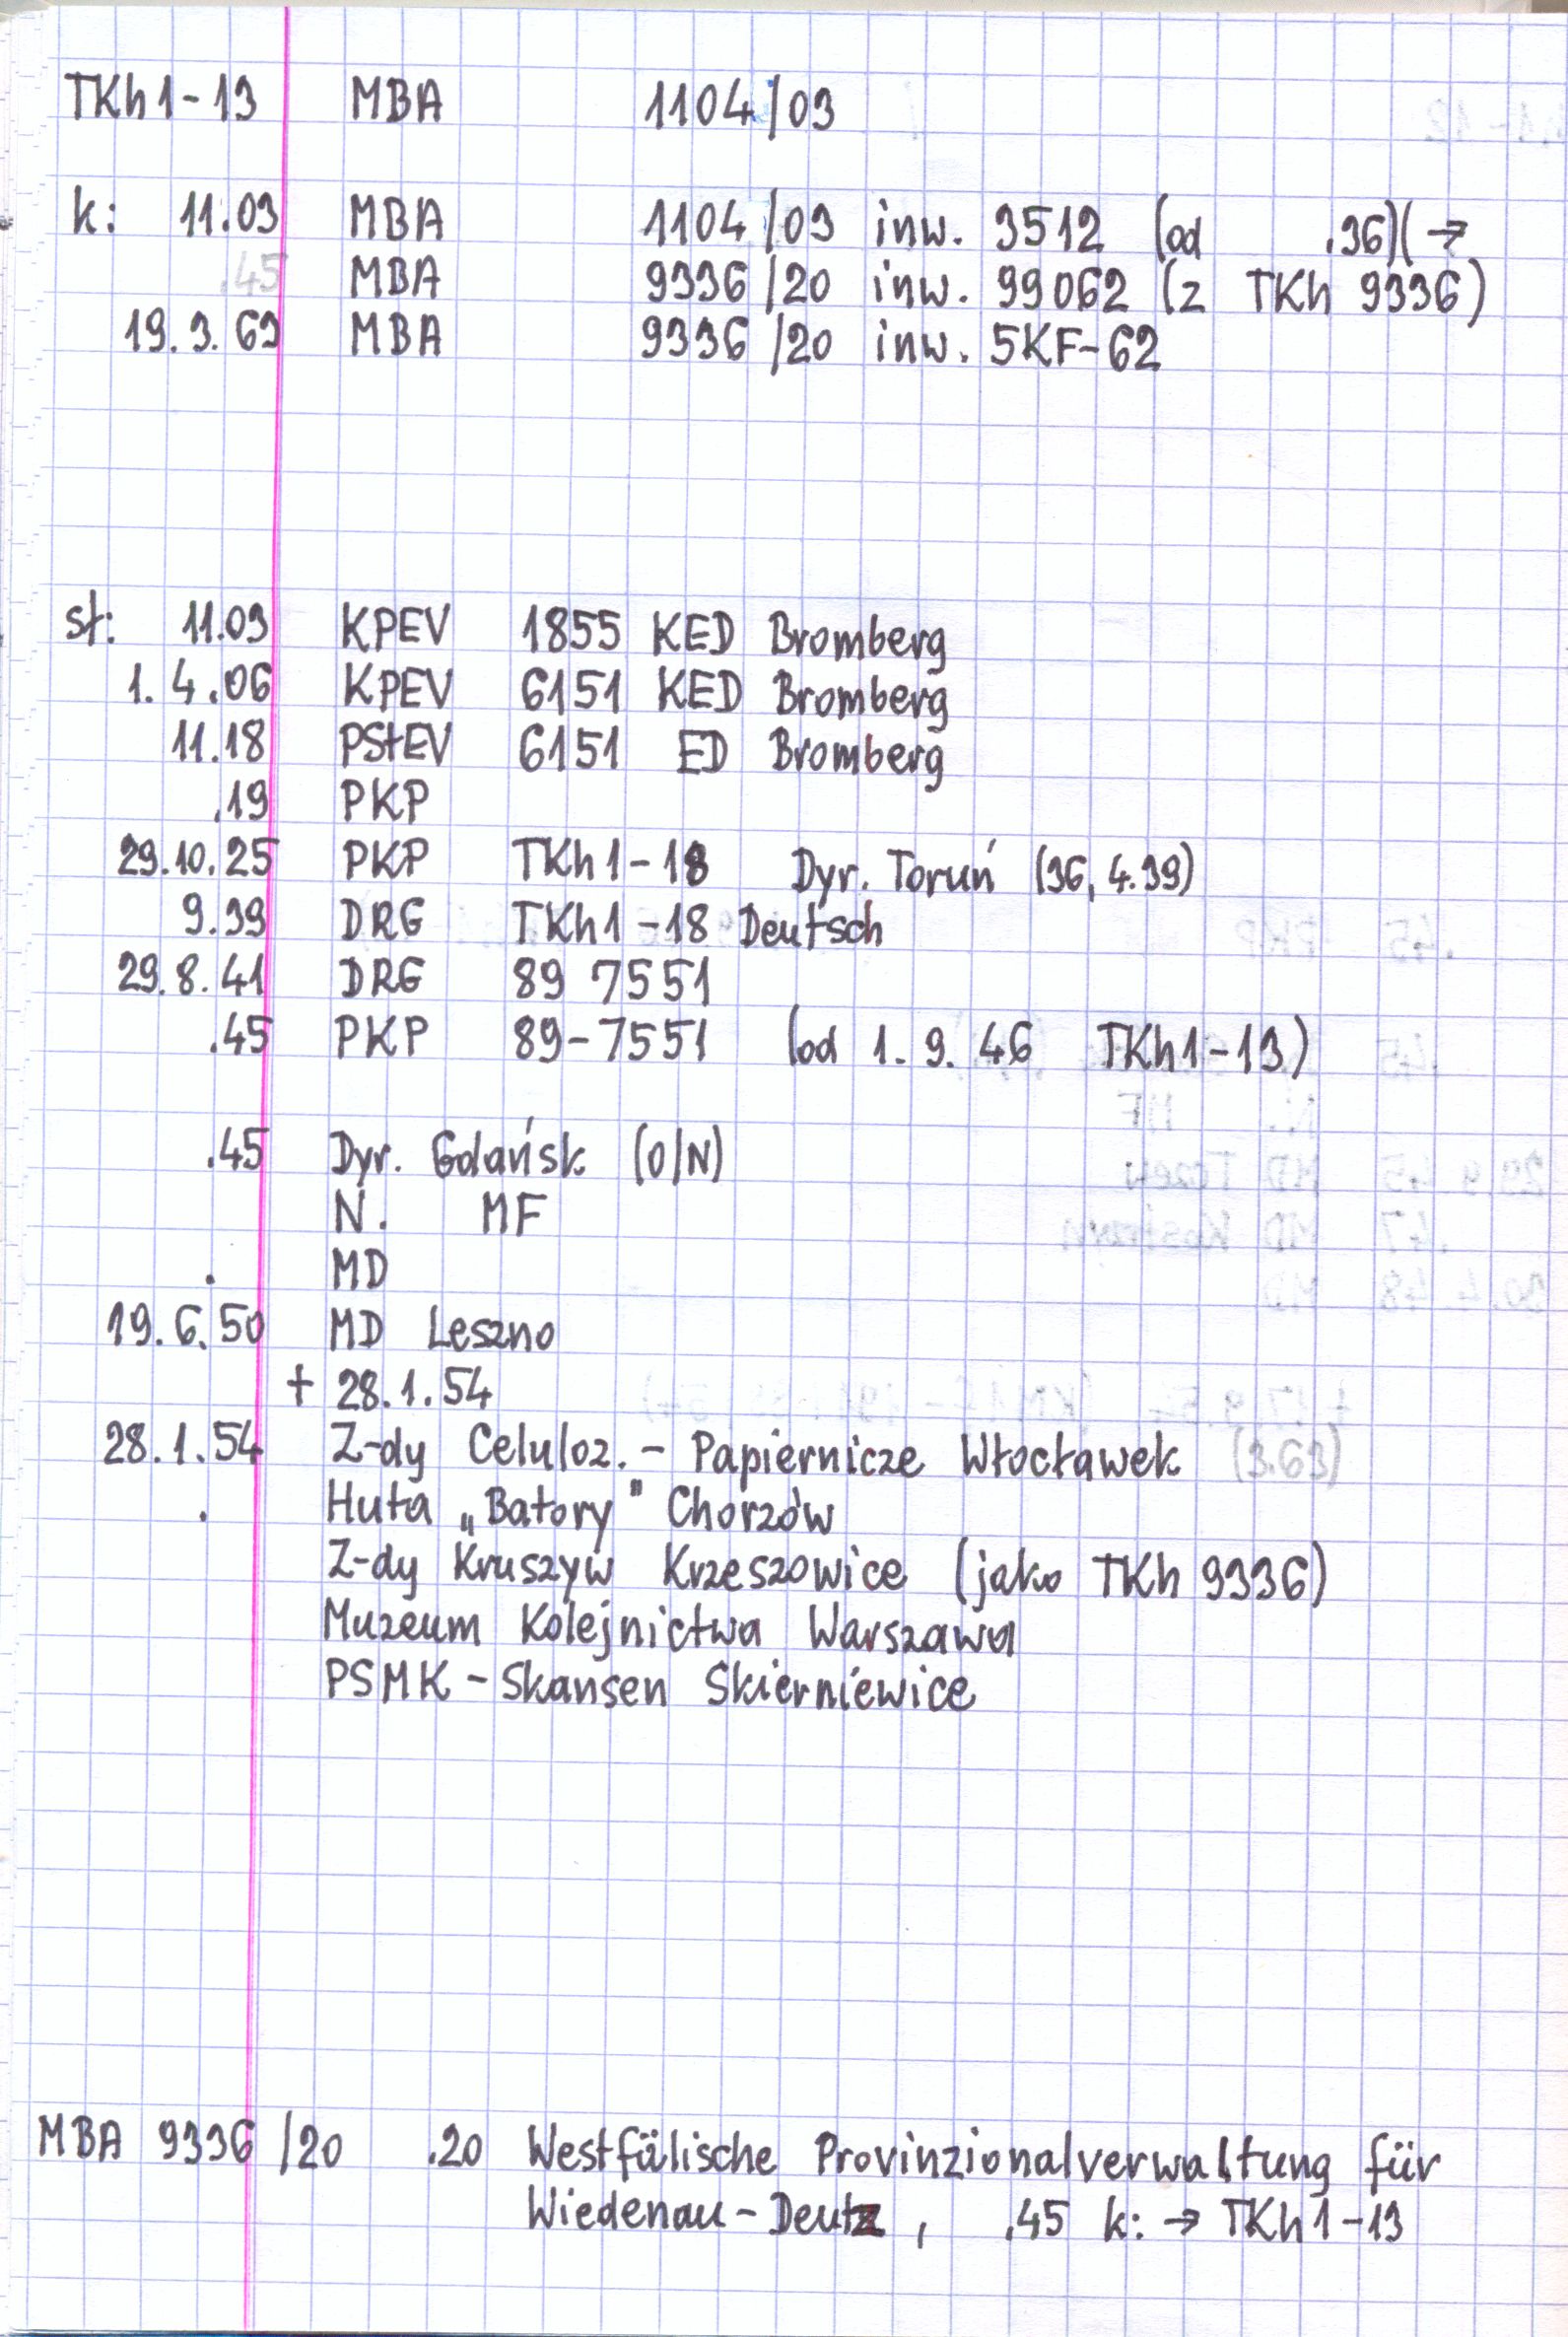 TKh1-13 MBA 1104/03
k: 11.03 MBA 1104/03 inw. 3512 (od .36)(→
.45 MBA 9336/20 inw. 99062 (z TKh 9336)
19.3.63 MBA 9336/20 inw. 5KF-62
st: 11.03 KPEV 1855 KED Bromberg
1.4.06 KPEV 6151 KED Bromberg
11.18 PStEV 6151 ED Bromberg
.19 PKP
29.10.25 PKP TKh1-18 Dyr. Toruń (36, 4.39)
9.39 DRG TKh1-18 Deutsch
29.8.41 DRG 89 7551
.45 PKP 89-7551 (od 1.9.46 TKh1-13)
.45 Dyr. Gdańsk (O/N)
N. MF
. MD
19.6.50 MD Leszno
+ 28.1.54
28.1.54 Z-dy Celuloz.-Papiernicze Włocławek (3.63)
. Huta „Batory" Chorzów
Z-dy Kruszyw Krzeszowice (jako TKh 9336)
Muzeum Kolejnictwa Warszawa
PSMK - Skansen Skierniewice
MBA 9336/20 .20 Westfälische Provinzionalverwaltung für
Wiedenau-Deutz, .45 k: → TKh1-13